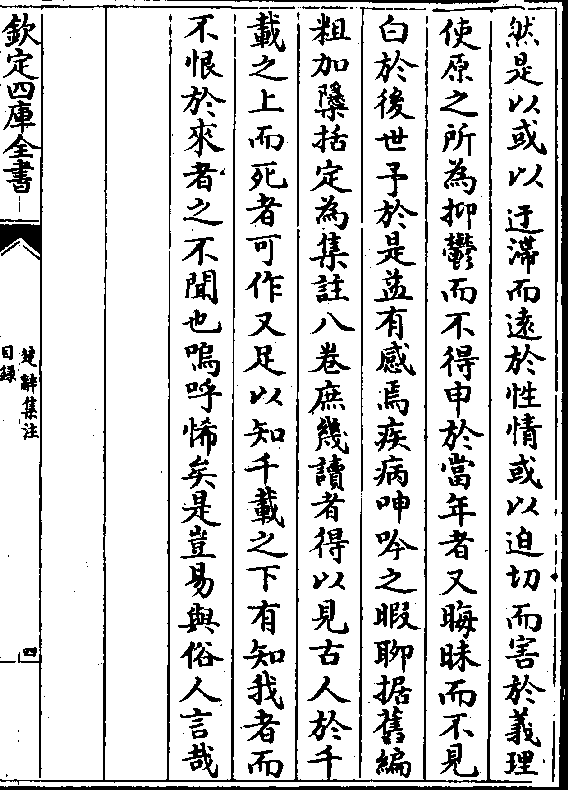 然是以或以迂滯而遠於性情或以迫切而害於義理
使原之所為抑鬱而不得申於當年者又晦昧而不見
白於後世予於是益有感焉疾病呻吟之暇聊据舊編
粗加檃括定為集註八卷庶幾讀者得以見古人於千
載之上而死者可作又足以知千載之下有知我者而
不恨於來者之不聞也嗚呼悕矣是豈易與俗人言哉
欽定四庫全書
楚辭集注
目錄
四